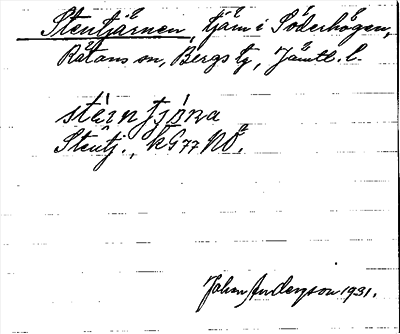 Stentjärnen, tjärn i Söderhögen,
Rätans sn, Bergs tg, Jämtl. l.
Stentj., kG77 NO.
Johan Anderson 1931.